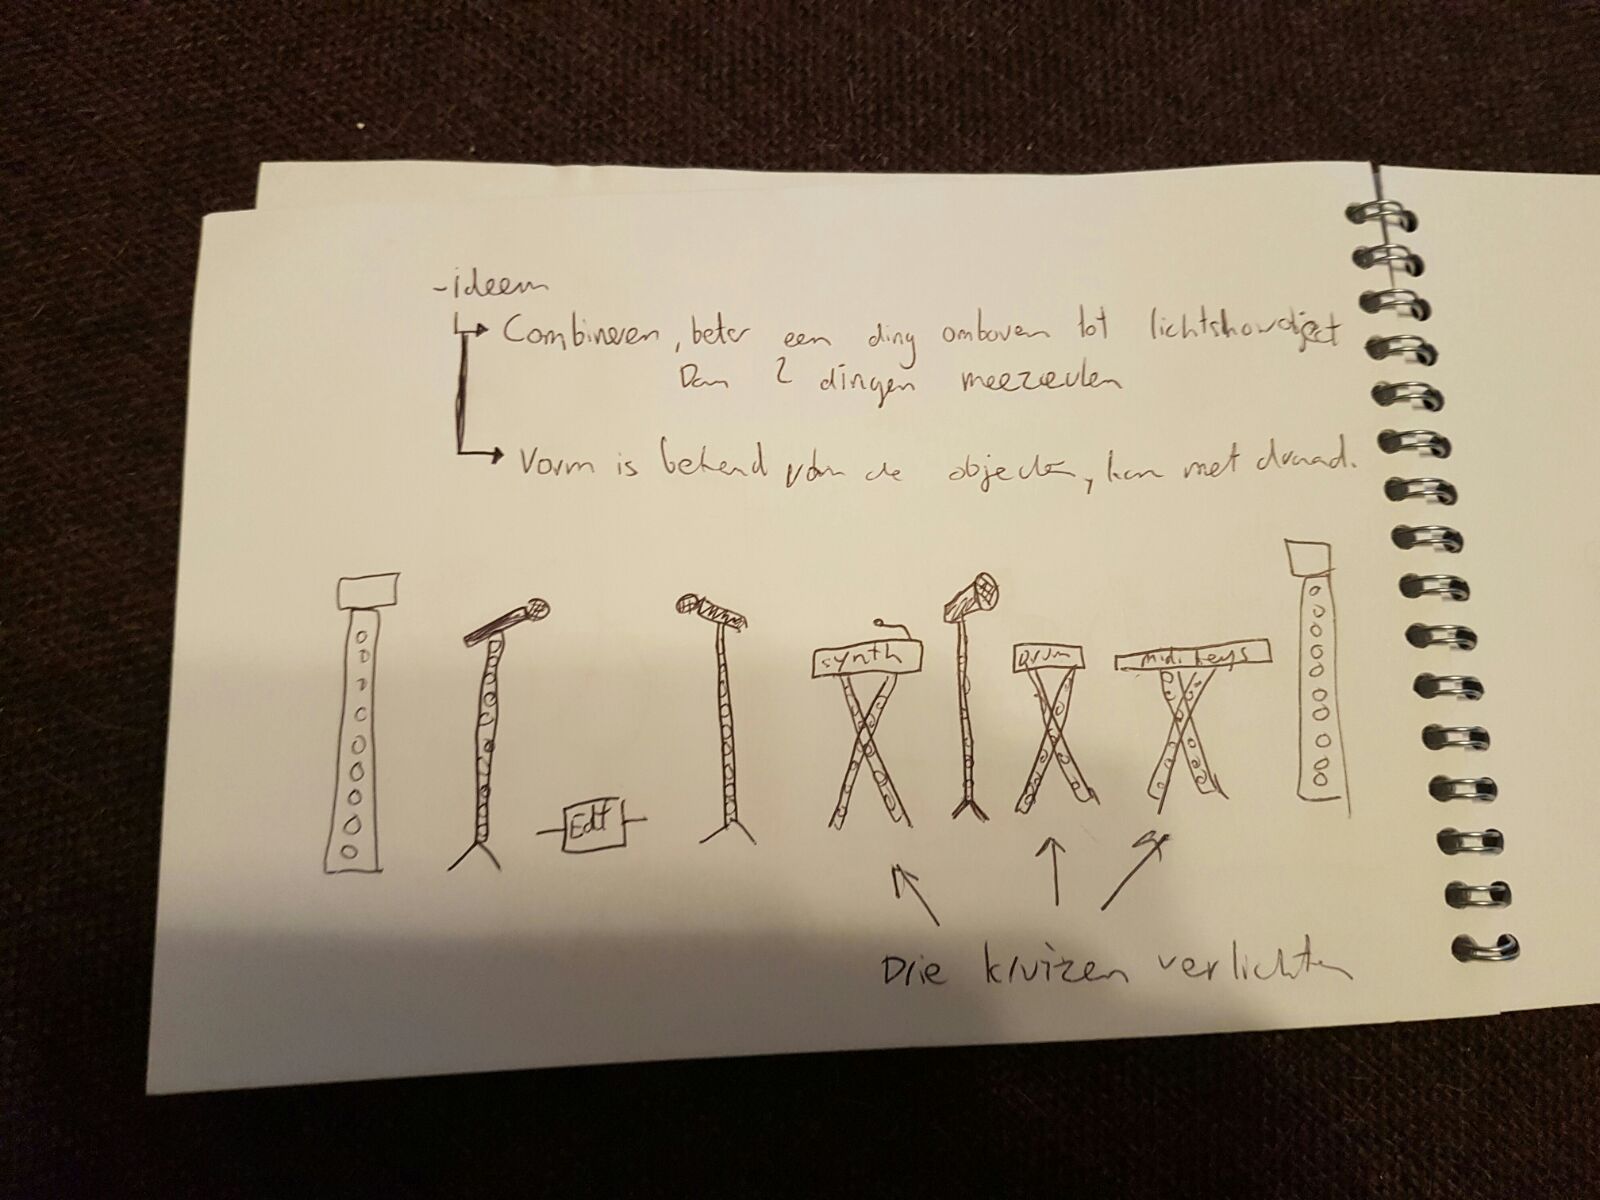 -ideeen
Combineren, beter een ding ombouwen tot lichtshowobject
Dan 2 dingen meezeulen
Vorm is bekend van de objecten, kan met draad.
synth
Drum
midi keys
Drie kruizen verlichten